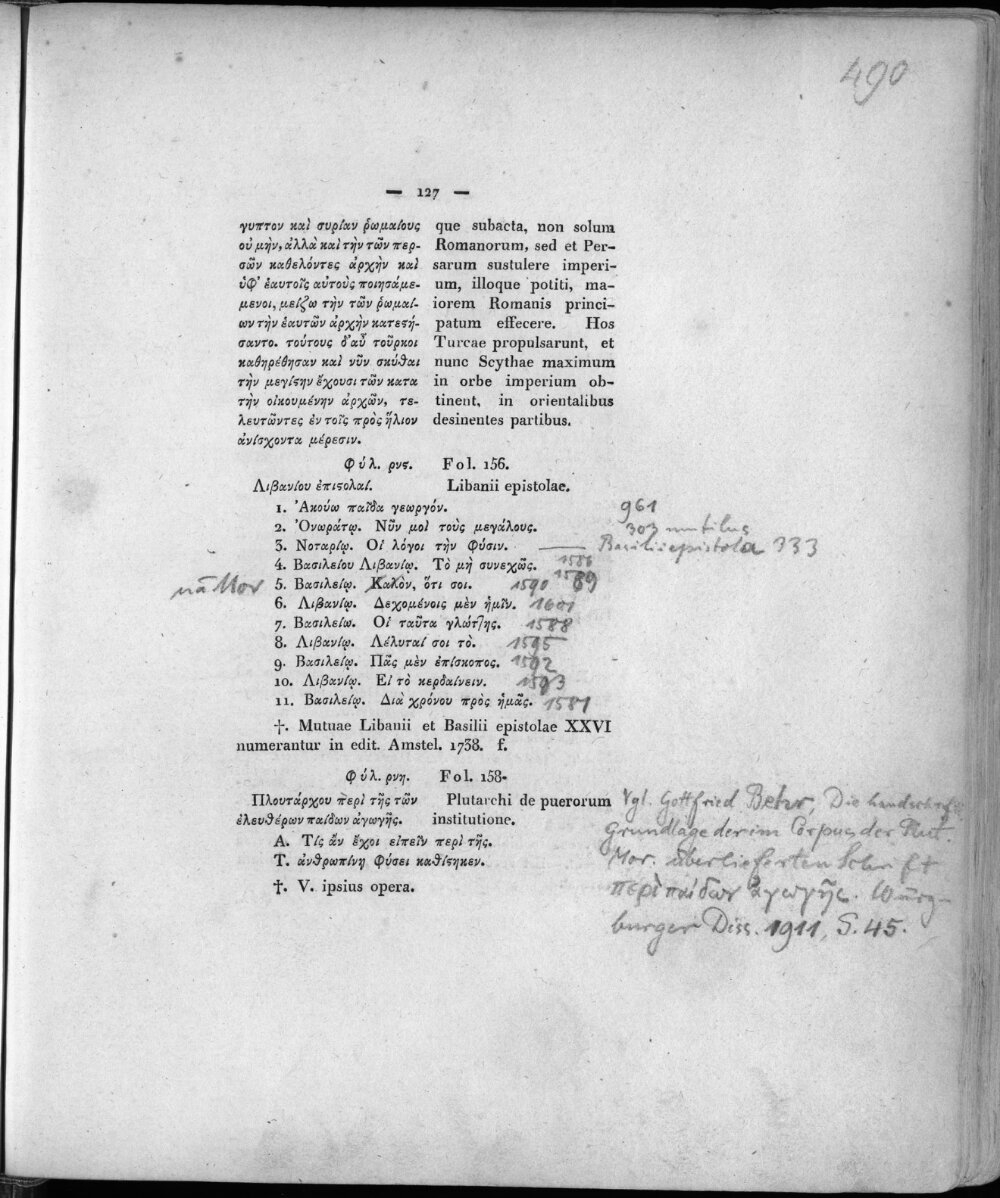 490
— 127 —
γυπτον καὶ συρίαν ῥωμαίους
οὐ μὴν, ἀλλὰ καὶ τὴν τῶν περ-
σῶν καθελόντες ἀρχὴν καὶ
ὑφ' ἑαυτοῖς αὐτοὺς ποιησάμε-
μενοι, μείζω τὴν τῶν ῥωμαί-
ων τὴν ἑαυτῶν ἀρχὴν κατεστή-
σαντο. τούτους δ'αὖ τοῦρκοι
καθηρέθησαν καὶ νῦν σκύθαι
τὴν μεγίστην ἔχουσι τῶν κατα
τὴν οἰκουμένην ἀρχῶν, τε-
λευτῶντες ἐν τοῖς πρὸς ἥλιον
ἀνίσχοντα μέρεσιν.
que subacta, non solum
Romanorum, sed et Per-
sarum sustulere imperi-
um, illoque potiti, ma-
iorem Romanis princi-
patum effecere. Hos
Turcae propulsarunt, et
nunc Scythae maximum
in orbe imperium ob-
tinent, in orientalibus
desinentes partibus.
Φύλ. ρνϛ. Fol. 156.
Λιβανίου ἐπιστολαί. Libanii epistolae.
1. Ἀκούω παῖδα γεωργόν. 961
2. Ὀνωράτῳ. Νῦν μοι τοὺς μεγάλους. 303 mutilus
3. Νοταρίῳ. Οἱ λόγοι τὴν φύσιν. — Basilii epistola 333
4. Βασιλείου Λιβανίῳ. Τὸ μὴ συνεχῶς. 1586
1589
5. Βασιλείῳ. Καλὸν, ὅτι σοι. 1590
6. Λιβανίῳ. Δεχομένοις μὲν ἡμῖν. 1601
7. Βασιλείω. Οἱ ταῦτα γλώττης. 1588
8. Λιβανίῳ. Λέλυταί σοι τὸ. 1595
9. Βασιλείῳ. Πᾶς μὲν ἐπίσκοπος. 1592
10. Λιβανίῳ. Εἰ τὸ κερδαίνειν. 1593
11. Βασιλείῳ. Διὰ χρόνου πρὸς ἡμᾶς. 1581
†. Mutuae Libanii et Basilii epistolae XXVI
numerantur in edit. Amstel. 1738. f.
Φύλ. ρνη. Fol. 158.
Πλουτάρχου περὶ τῆς τῶν
ἐλευθέρων παίδων ἀγωγῆς.
Plutarchi de puerorum
institutione.
Α. Τίς ἄν ἔχοι εἰπεῖν περὶ τῆς.
Τ. ἀνθρωπίνῃ φύσει καθέστηκεν.
†. V. ipsius opera.
Vgl. Gottfried Behr, Die handschriftl.
Grundlage der im Corpus der Plut.
Mor. überlieferten Schrift
περὶ παίδων ἀγωγῆς. Würz-
burger Diss. 1911, S. 45.